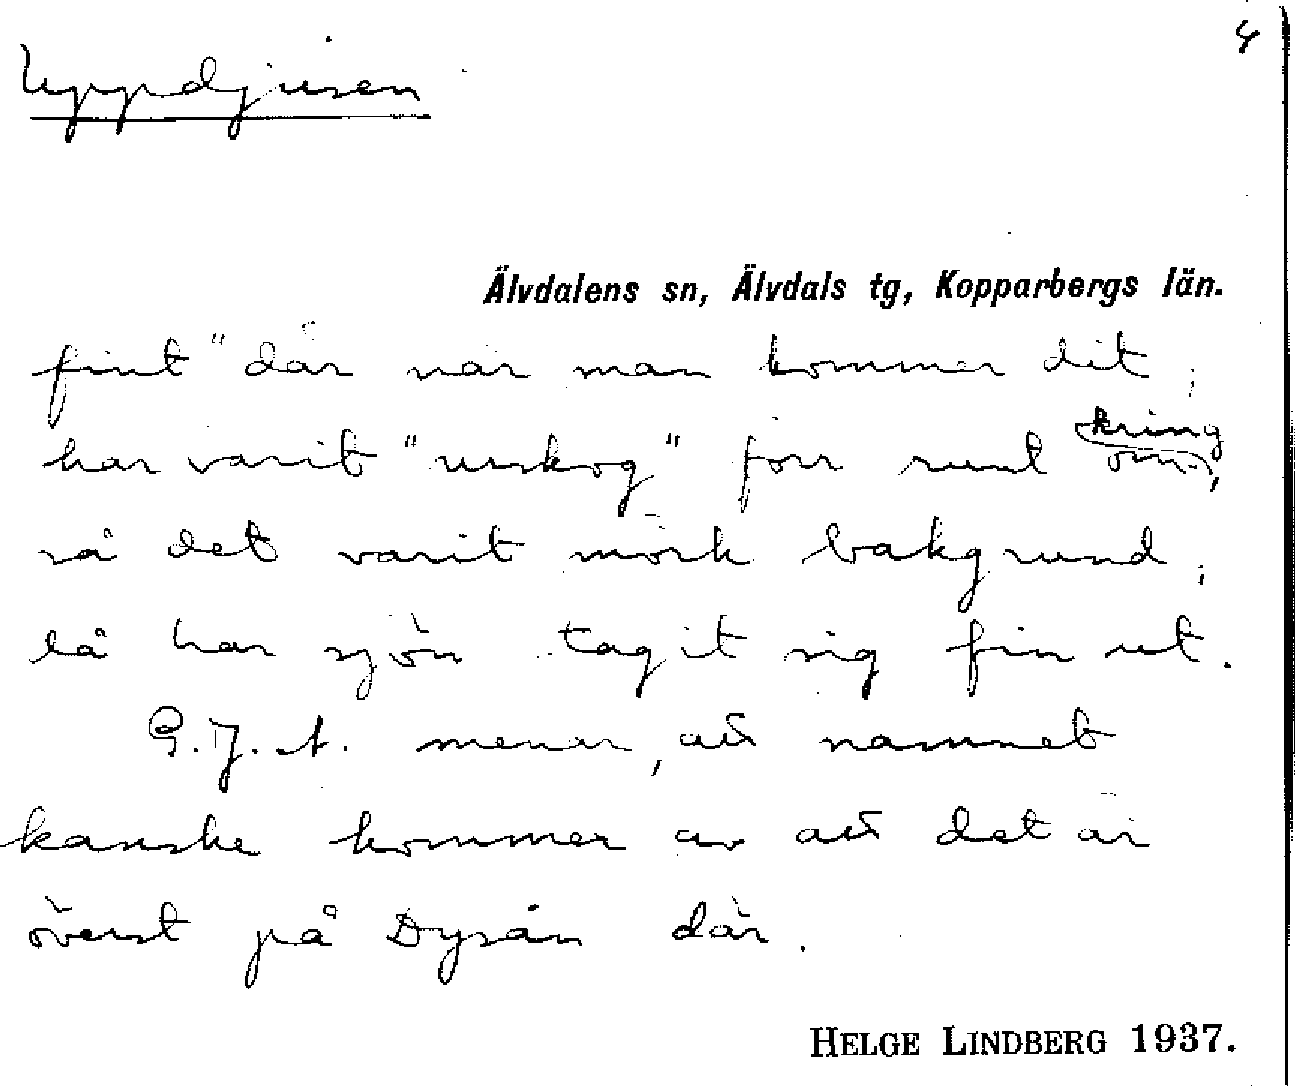 4
Uppdjusen
Älvdalens sn, Älvdals tg, Kopparbergs län.
fint" där när man kommer dit;
har varit "urskog" förr runt omkring,
så det varit mörk bakgrund;
så har sjön tagit sig fin ut.
G.J.A. menar, att namnet
kanske kommer av att det är
överst på Dysån där.
HELGE LINDBERG 1937.